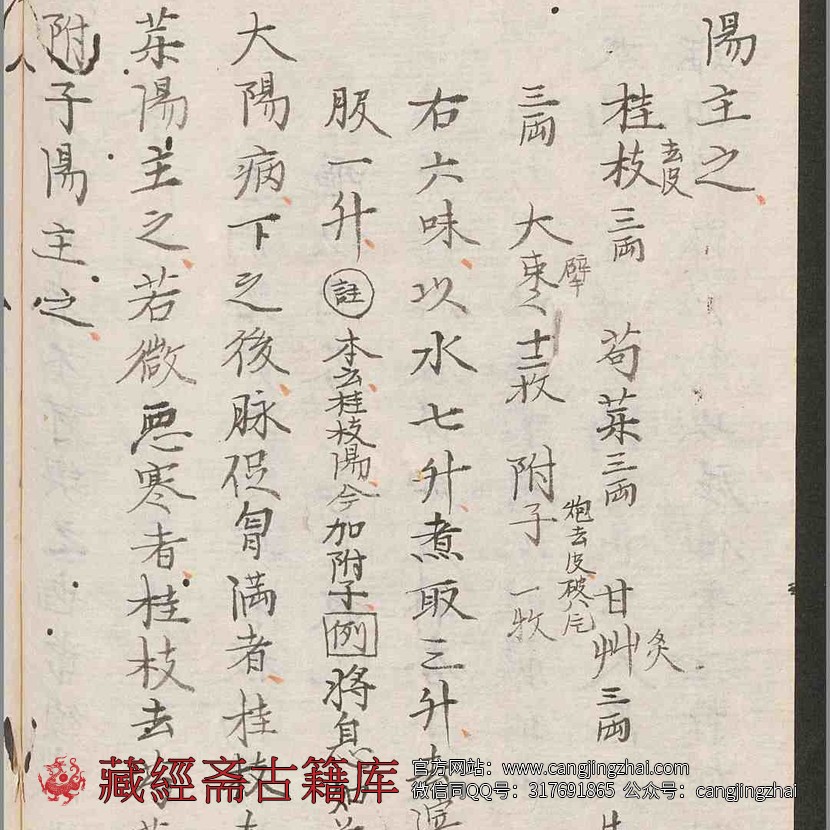 陽主之
桂枝去皮三両 芶薬三両 甘艸炙三両
三両 大束擘十二枚 附子炮去皮破八片一牧
右六味以水七升煮取三升去滓
服一升註本云桂枝陽今加附子例将息如
大陽病下之後脉促胷満者桂枝去
薬陽主之若微悪寒者桂枝去
附子陽主之
藏經斋古籍库
官方网站：www.cangjingzhai.com
微信同QQ号：317691865 公众号：cangjingzhai